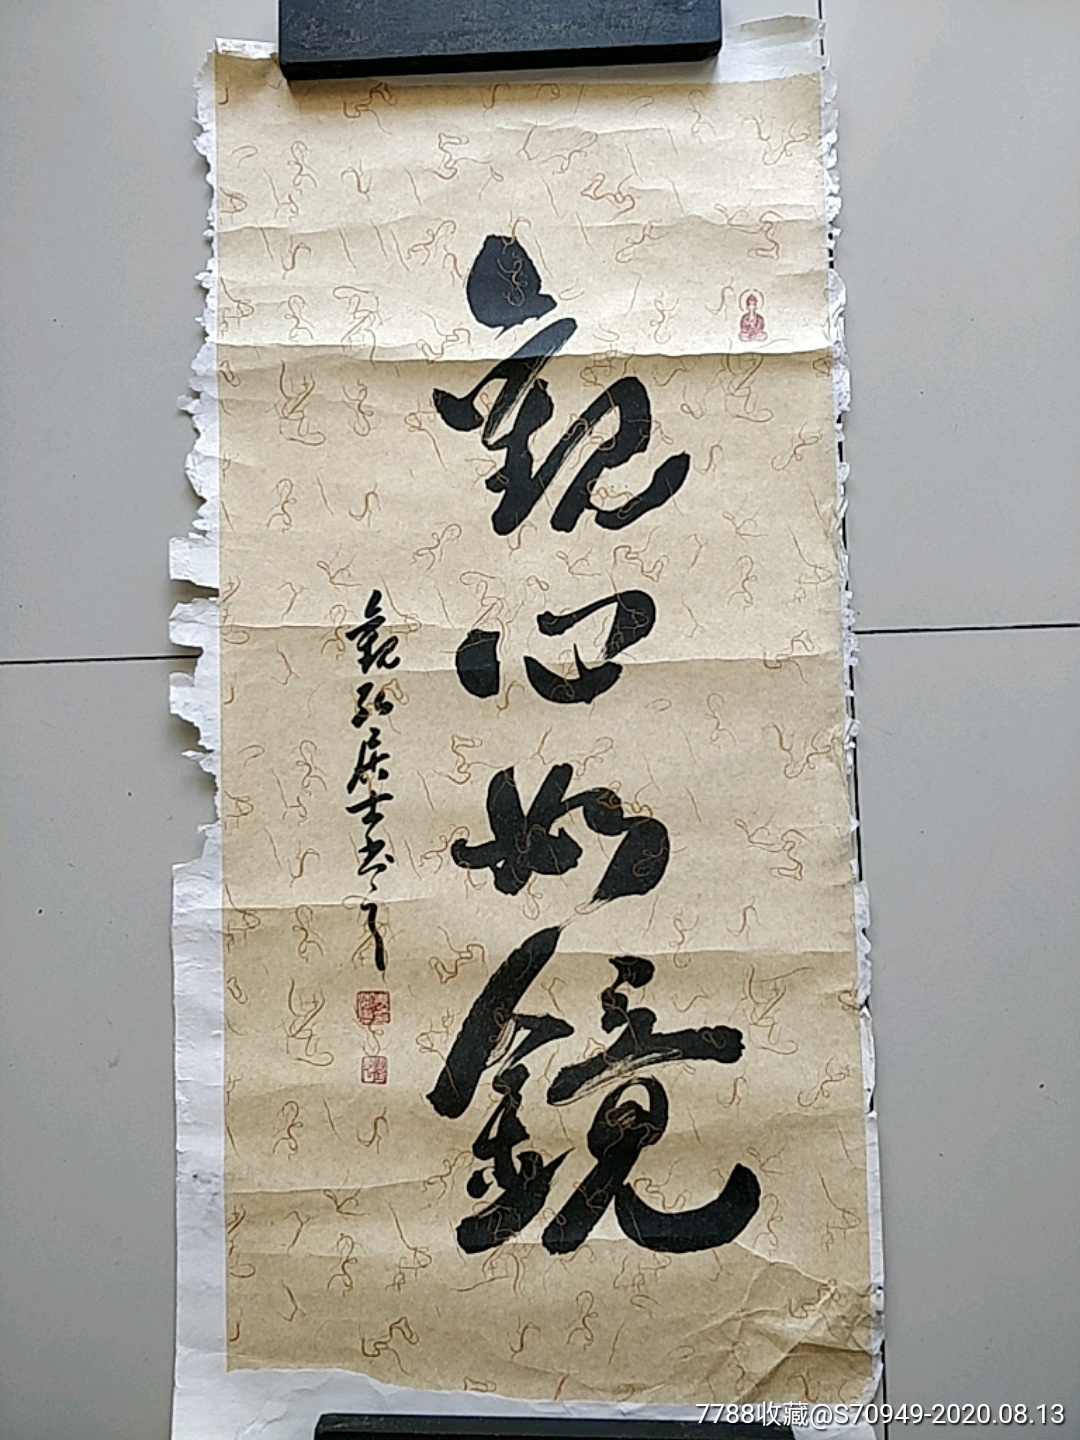 觀心如鏡
觀弘居士書之
7788收藏@S70949-2020.08.13